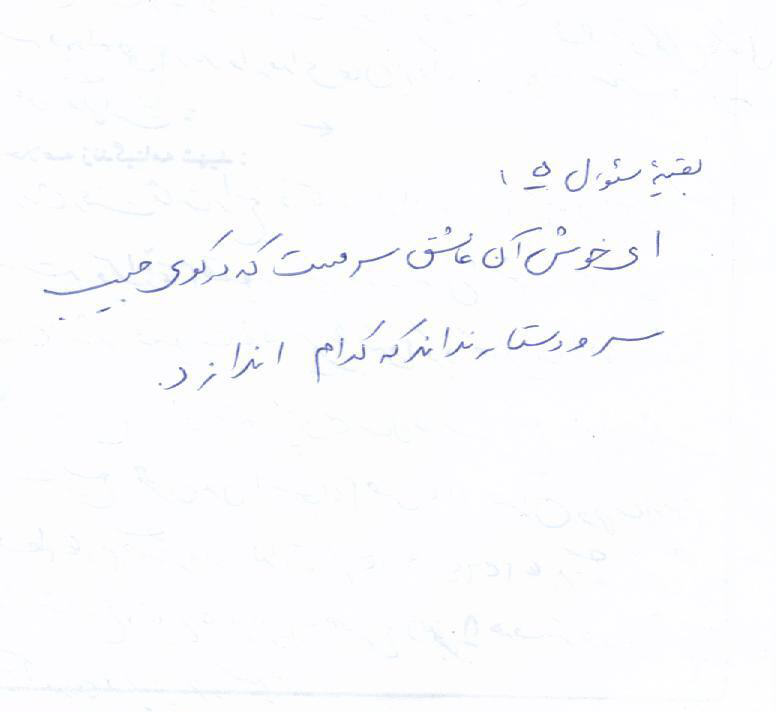 بقیهٔ سئوال ۵ :
ای خوش آن عاشق سرمست که در کوی حبیب
سر و دستار نداند که کدام اندازد.